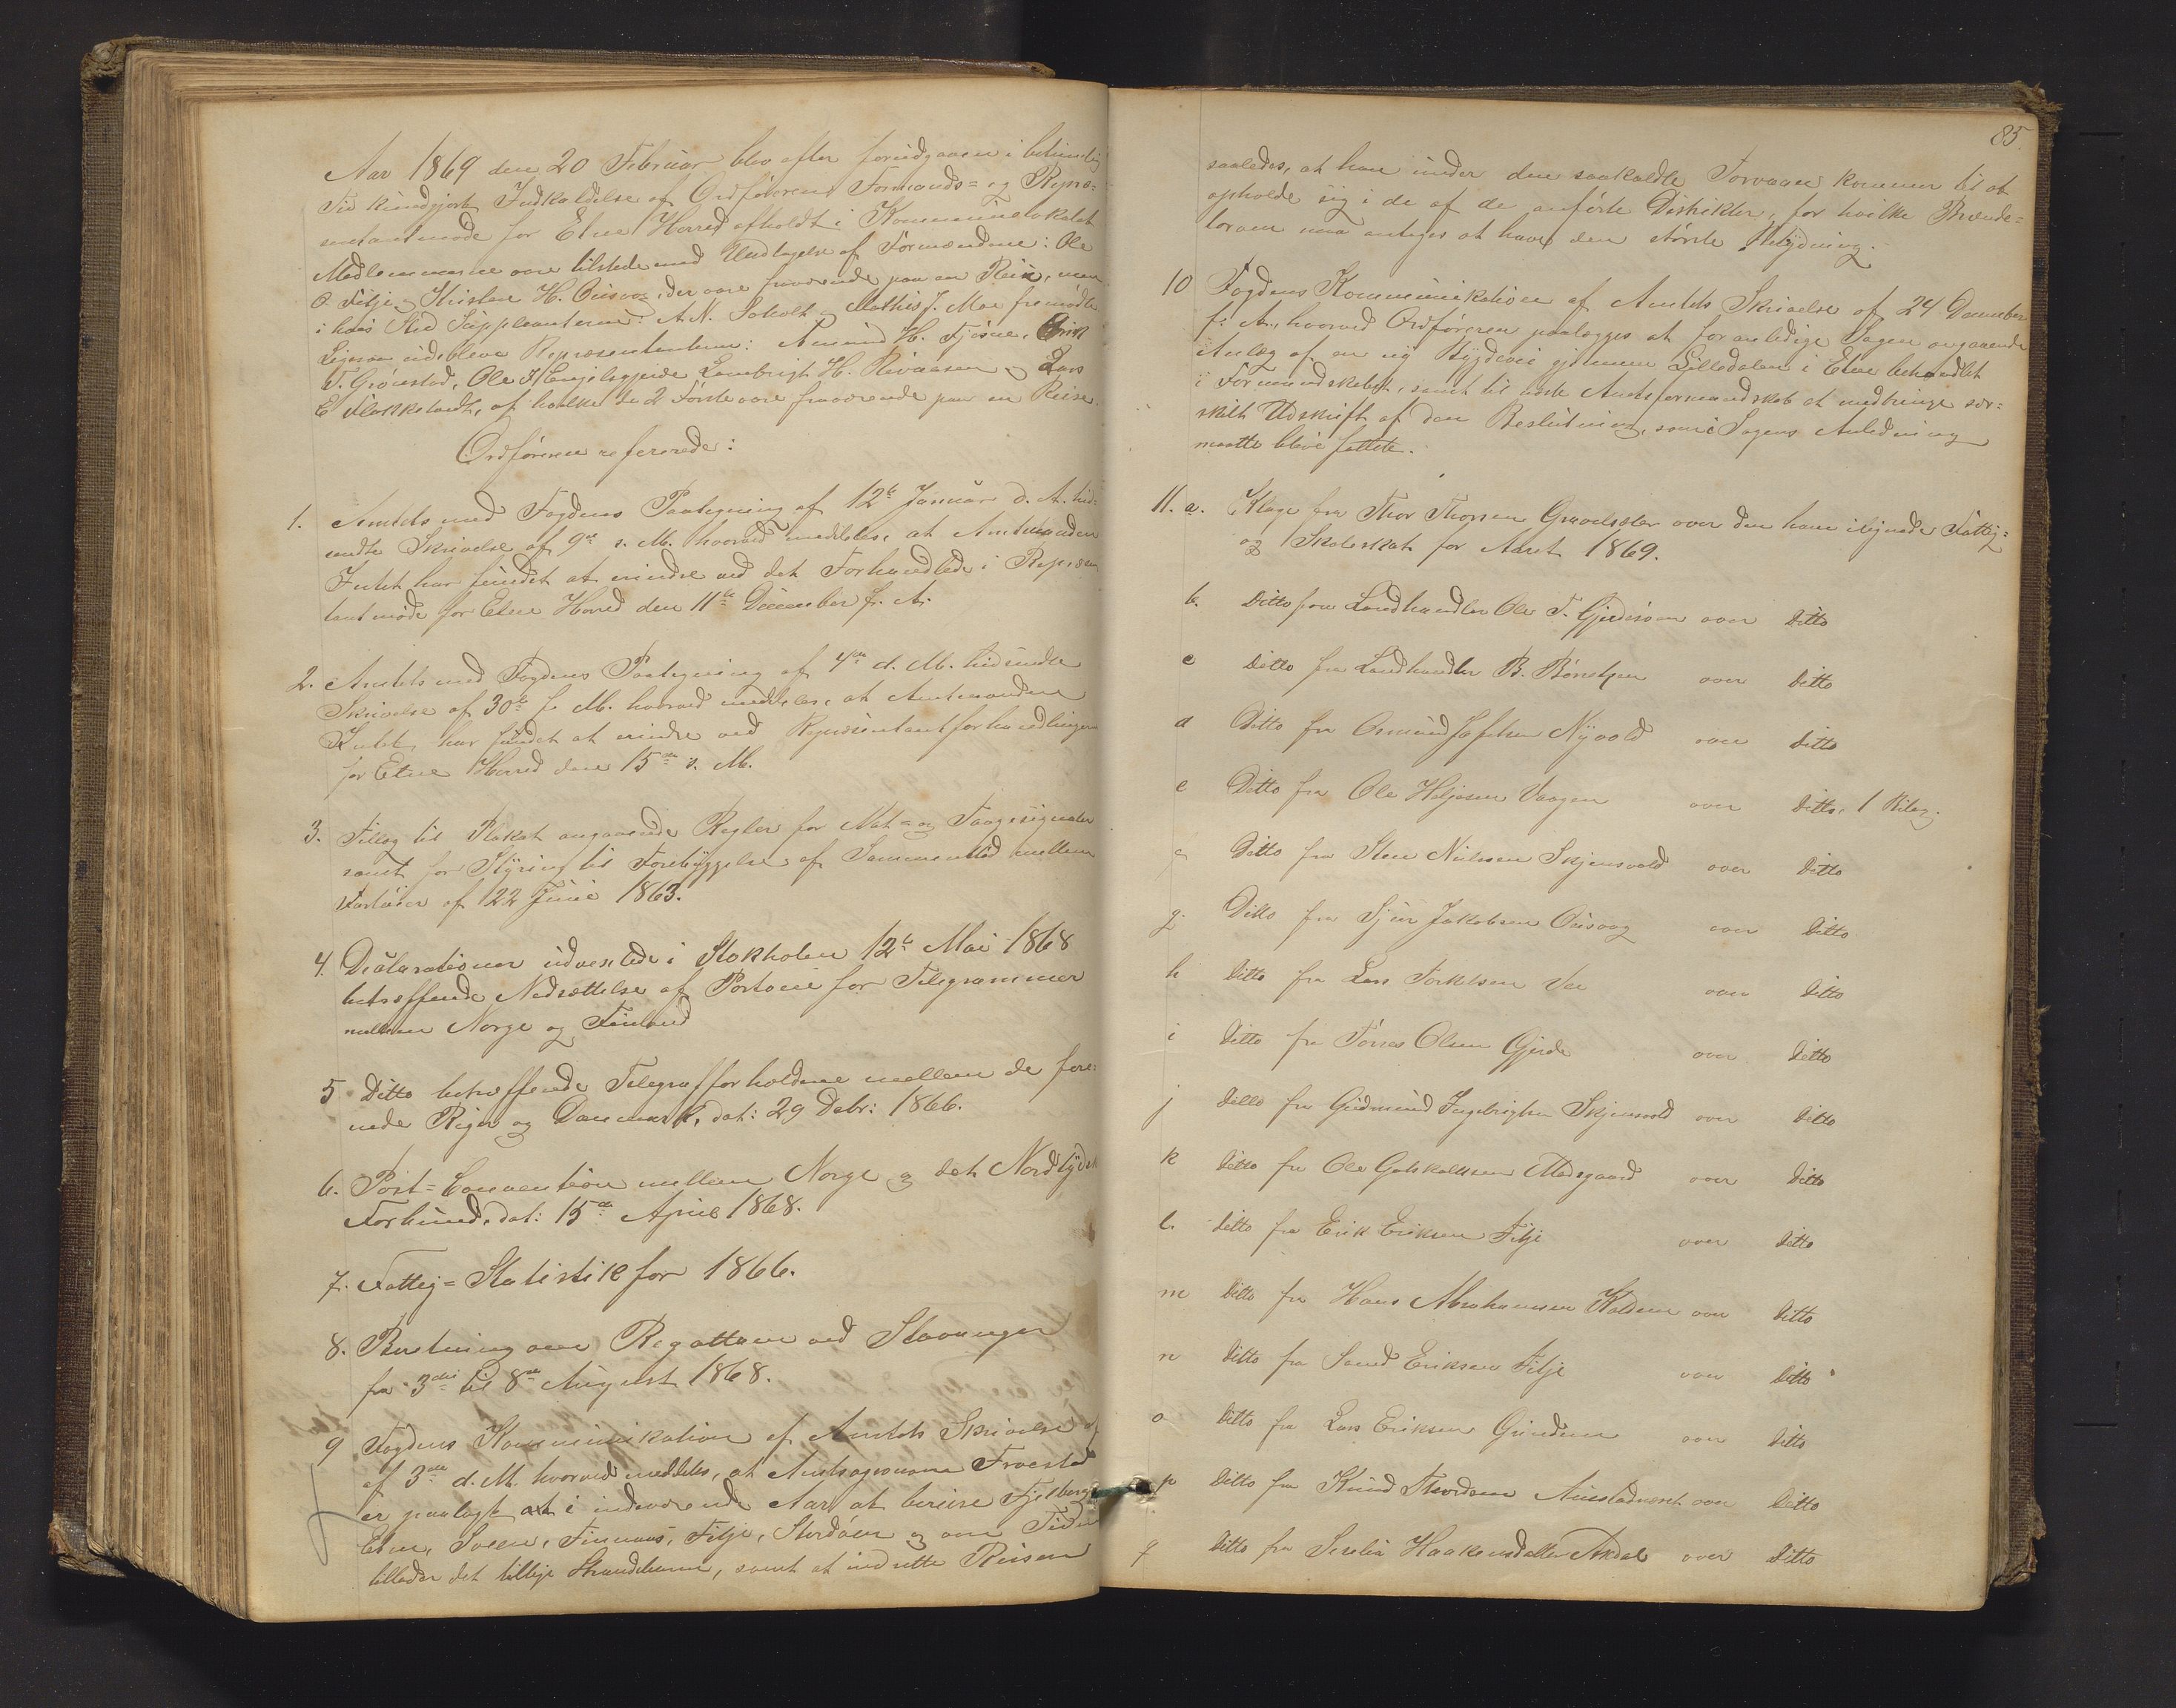 Aar 1869 den 20 Februar blev efter forudgaaen i betimelig
Tid kundgjort Indkaldelse af Ordføreren Formands- og Repræ-
sentantmøde for Etne Herred afholdt i Kommunelokalet
Medlemmerne vare tilstede med Undtagelse af Formændene: Ole
O. Fitje og Kristen H. Ousvog, der vare fraværende paa en Reise, men
i hvis Sted Suppleanterne: A. N. Soholt og Mathis J. Moe fremmødte
Ligesom udebleve Repræsentanterne: Amund H. Fjøsne, Erik
T. Grønstad, Ole H Engelsgjerde Lambrigt H. og Lars
E Flokketvedt, af hvilke de 2 Første vare fraværende paa en Reise.
Ordføreren refererede:
1. Amtets med Fogdens Paategning af 12te Januar d. A. hid-
sendte Skrivelse af 9de s. M. hvorved meddeles, at Amtmanden
Intet har fundet at erindre ved det Forhandlede i Repræsen
tantmøde for Etne Herred den 11te December f. A.
2. Amtets med Fogdens Paategning af 4de d. M. hidsendte
Skrivelse af 30te f. M. hvorved meddeles, at Amtmanden
Intet har fundet at erindre ved Repræsentantforhandlingen
for Etne Herred den 15de s. M.
3. Tillæg til Plakat angaaende Regler for Nat- og Taagesignaler
samt for Styring til Forebyggelse af Sammenstød mellem
Fartøier af 22 Juni 1863.
4. Declarationer udvexlede i Stokholm 12te Mai 1868
betræffende Nedsættelse af Portoen for Telegrammer
mellem Norge og Finland
5 Ditto betræffende Telegrafforholdene mellem de fore-
nede Riger og Danmark, dat: 29 Debr: 1866.
6. Post-Convention mellem Norge og det Nordtydske
Forbund, dat: 15de April 1868.
7. Fattig-Statistik for 1866.
8. Beretning om Regattaen ved Stavanger
fra 3die til 8de August 1868.
9 Fogdens Kommunikation af Amtets Skrivelse af
af 3die d. M. hvorved meddeles, at Amtsagronom Froestad
er paalagt at i indeværende Aar at bereise Fjelberg
Etne, Sveen, Finnaas, Fitje, Stordøen og om Tiden
tillader det tillige Strandebarm, samt at indrette Reisen
85.
saaledes, at han under den saakaldte Torvaan kommer til at
opholde sig i de af de anførte Distrikter, for hvilke Brænde-
torven maa antages at have den største Betydning.
10 Fogdens Kommunikation af Amtets Skrivelse af 24 December
f. A., hvorved Ordføreren paalægges at foranledige Sagen angaaende
Anlæg af en ny Bygdevei gjennem Lilledalen i Etne behandlet
i Formandskabet, samt til næste Amtsformandskab at medbringe sær-
skilt Udskrift af den Beslutning, som i Sagens Anledning
maatte blive fattet.
11. a. Klage fra Thor Thorsen Gravelsæter over den ham ilignede Fattig-
og Skoleskat for Aaret 1869.
b. Ditto fra Landhandler Ole T. Gjerdsøen over Ditto
c Ditto fra Landhandler B. Børretzen over Ditto
d Ditto fra Osmund Nyvold over Ditto
e Ditto fra Ole Heljesen Vaagen over Ditto, 1 Bilag.
f Ditto fra Sten Nielssen Skjensvold over Ditto
g. Ditto fra Sjur Jakobsen Ousvog over Ditto
h Ditto fra Lars Torkelsen Vee over Ditto
i Ditto fra Tørres Olsen Gjerde over Ditto
j Ditto fra Gudmund Ingebrigtsen Skjensvold over Ditto
k Ditto fra Ole Gotskalksen Medgaard over Ditto
l. Ditto fra Erik Eriksen Fitje over Ditto
m Ditto fra Hans Abrahamsen Kalden over Ditto
n Ditto fra Samd Eriksen Fitje over Ditto
o Ditto fra Lars Eriksen Grinden over Ditto
p Ditto fra Knud Thordsen over Ditto
q Ditto fra Serelia Haakensdatter Akdal over Ditto